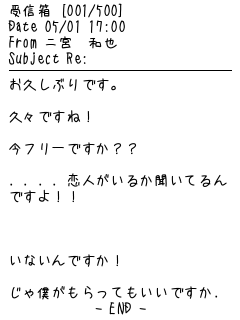 受信箱 [001/500]
Date 05/01 17:00
From 二宮　和也
Subject Re:
お久しぶりです。
久々ですね！
今フリーですか？？
．．．．恋人がいるか聞いてるん
ですよ！！
いないんですか！
じゃ僕がもらってもいいですか．
- END -